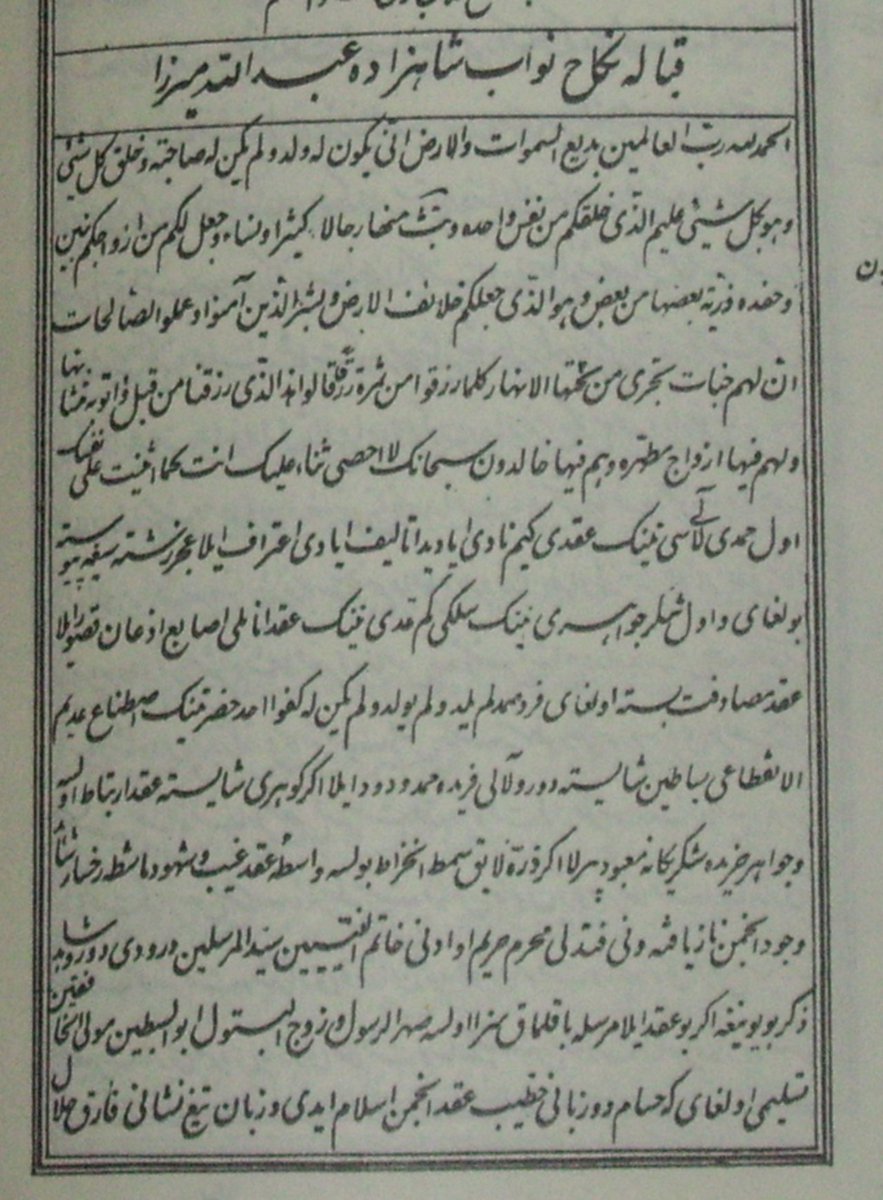 قباله نکاح نواب شاهزاده عبدالله میرزا
الحمدلله رب العالمین بدیع السموات والارض انّی یکون له ولد ولم یکن له صاحبته وخلق کل شیئی
وهو بکل شیئی علیم الذّی خلقکم من نفس واحده وبثّ منها رجالا کثیرا ونساء وجعل لکم من ازواجکم بنین
وحفده ذریّه بعضها من بعض وهو الذّی جعلکم خلائف الارض وبشّر الذّین آمنوا وعملوا الصّالحات
انّ لهم جنات تجری من تحتها الانهار کلما رزقوا من ثمرة رزقا قالوا هذا الذّی رزقنا من قبل واتوبه متشابها
ولهم فیها ازواج مطهّره وهم فیها خالدون سبحانک لا احصی ثناء علیک انت کما اثنیت علی نفسک
اول حمدی لآلی سی نینک عقدی کیم نادی ایادیدا تالیف ایادی اعتراف ایلا عجز رشته سیغه پیوسته
بولغای و اول شکر جواهری نینک سلکی کم قدی نینک عقد اناملی اصابع اذعان قصور ایلا
عقد مصادفت بسته اولغای فرد صمد لم یلد ولم یولد ولم یکن له کفوا احد حضرتینک اصطناع عدیم
الانقطاعی بساطین شایسته دور ولآلی فریده حمد ودود ایلا اکر کوهری شایسته عقد ارتباط اولسه
وجواهر خریده شکر یکانه معبود برلا اکر ذرّه لایق سمط انخراط بولسه واسطهٔ عقد غیب وشهود ماشطه رخسار شاهد
وجود انجمن ناز یافته ونی فتدلی محرم حریم او ادنی خاتم النّبیین سیّد المرسلین درودی دور وبو شاهد
ذکر بویونیغه اکر بو عقد ایلا مرسله باقلماق سزا اولسه صهر الرسول وزوج البتول ابو السبطین مولی الخافقین
تسلیمی اولغای که حسام دو زبانی خطیب عقد انجمن اسلام ایدی وزبان تیغ نشانی فارق حلال